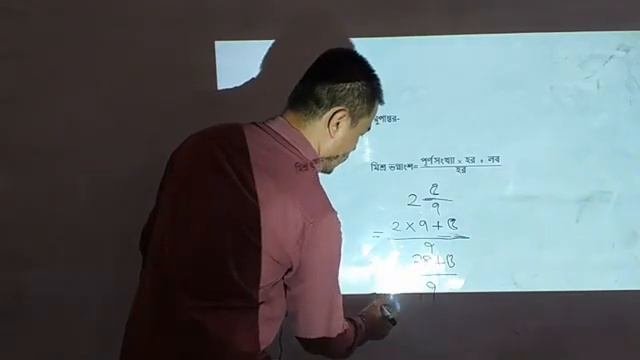 রুপান্তর-
মিশ্র
মিশ্র ভগ্নাংশ= পূর্ণসংখ্যা × হর + লব
হর
২ ৫
৭
= ২ × ৭ + ৫
৭
১৪ + ৫
৭